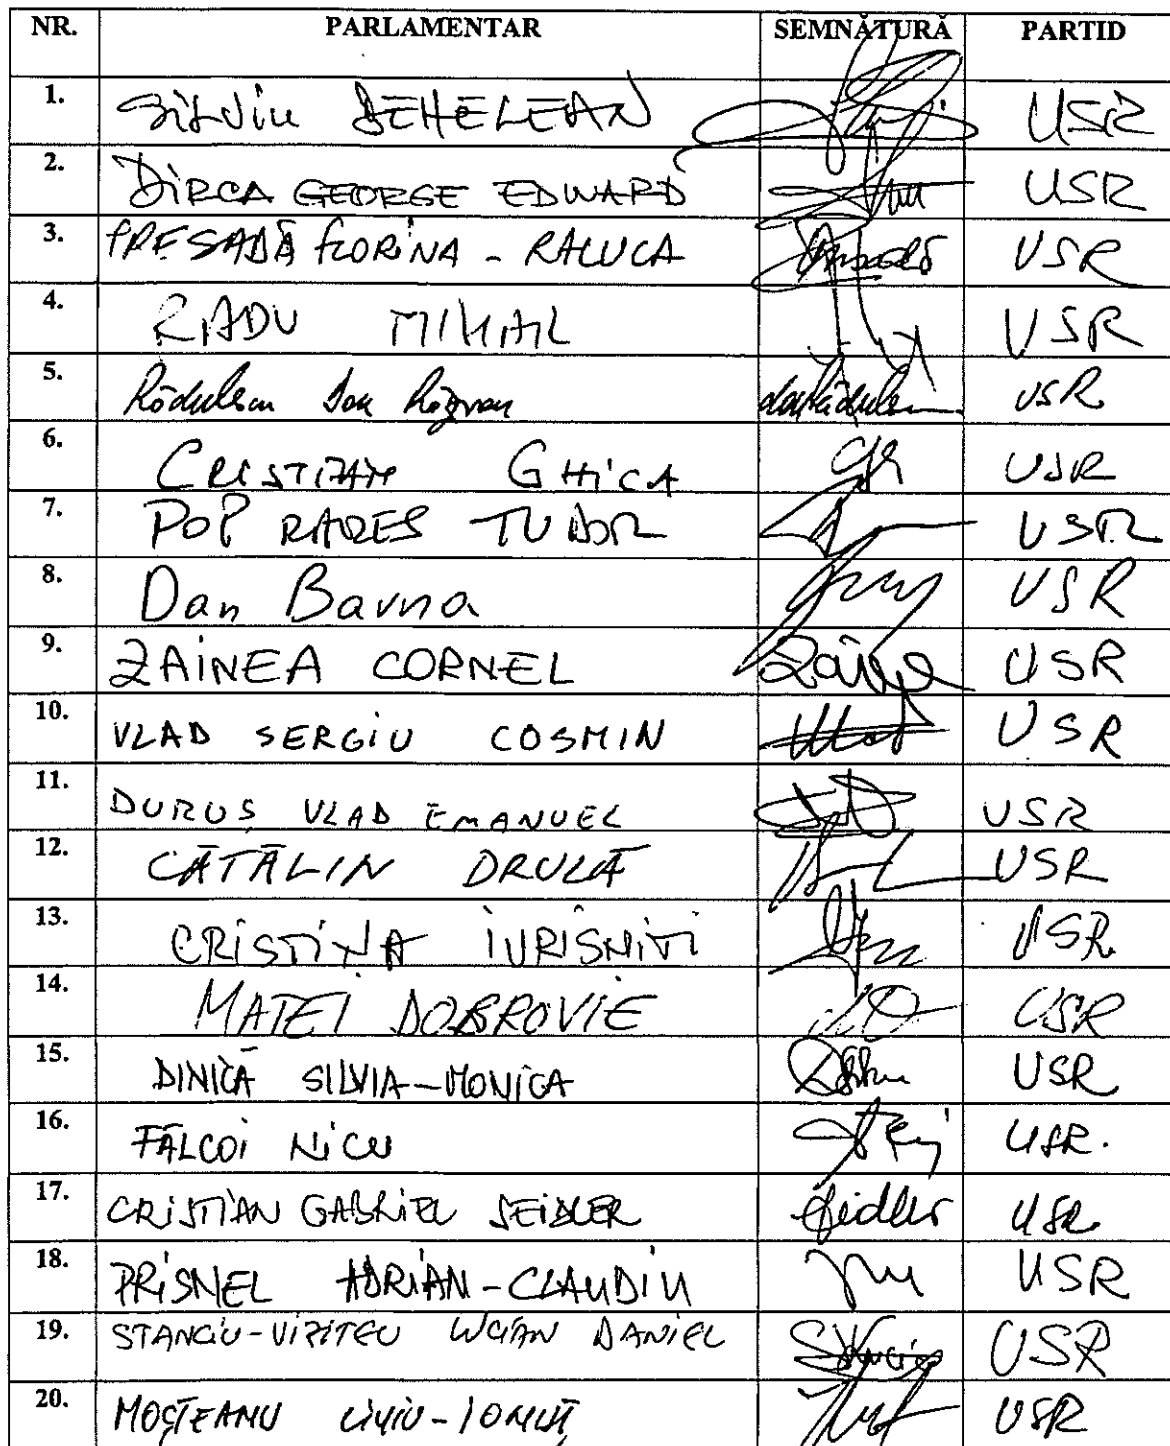 NR. PARLAMENTAR SEMNĂTURĂ PARTID
1. SiLViu DEHELEAN USR
2. DiRCA GEORGE EDWARD USR
3. PRESADĂ FLORiNA - RALUCA USR
4. RADU MIHAIL USR
5. Rădulescu Dan Răzvan USR
6. CRISTIAN GHiCA USR
7. POP RARES TUDOR USR
8. Dan Barna USR
9. ZAiNEA CORNEL Zainea USR
10. VLAD SERGiU COSMIN Vlad USR
11. DURUȘ VLAD EMANUEL USR
12. CĂTĂLIN DRULĂ USR
13. CRiSTiNA iURiSNiTi USR
14. MATEI DOBROVIE USR
15. DINICĂ SILVIA-MONiCA USR
16. FĂLCOi NiCU USR.
17. CRiSTiAN GABRiEL SEiDLER Seidler USR
18. PRiSNEL ADRiAN-CLAUDiU USR
19. STANCiU-ViZiTEU LUCiAN DANiEL USR
20. MOȘTEANU LiViU-IONUȚ USR